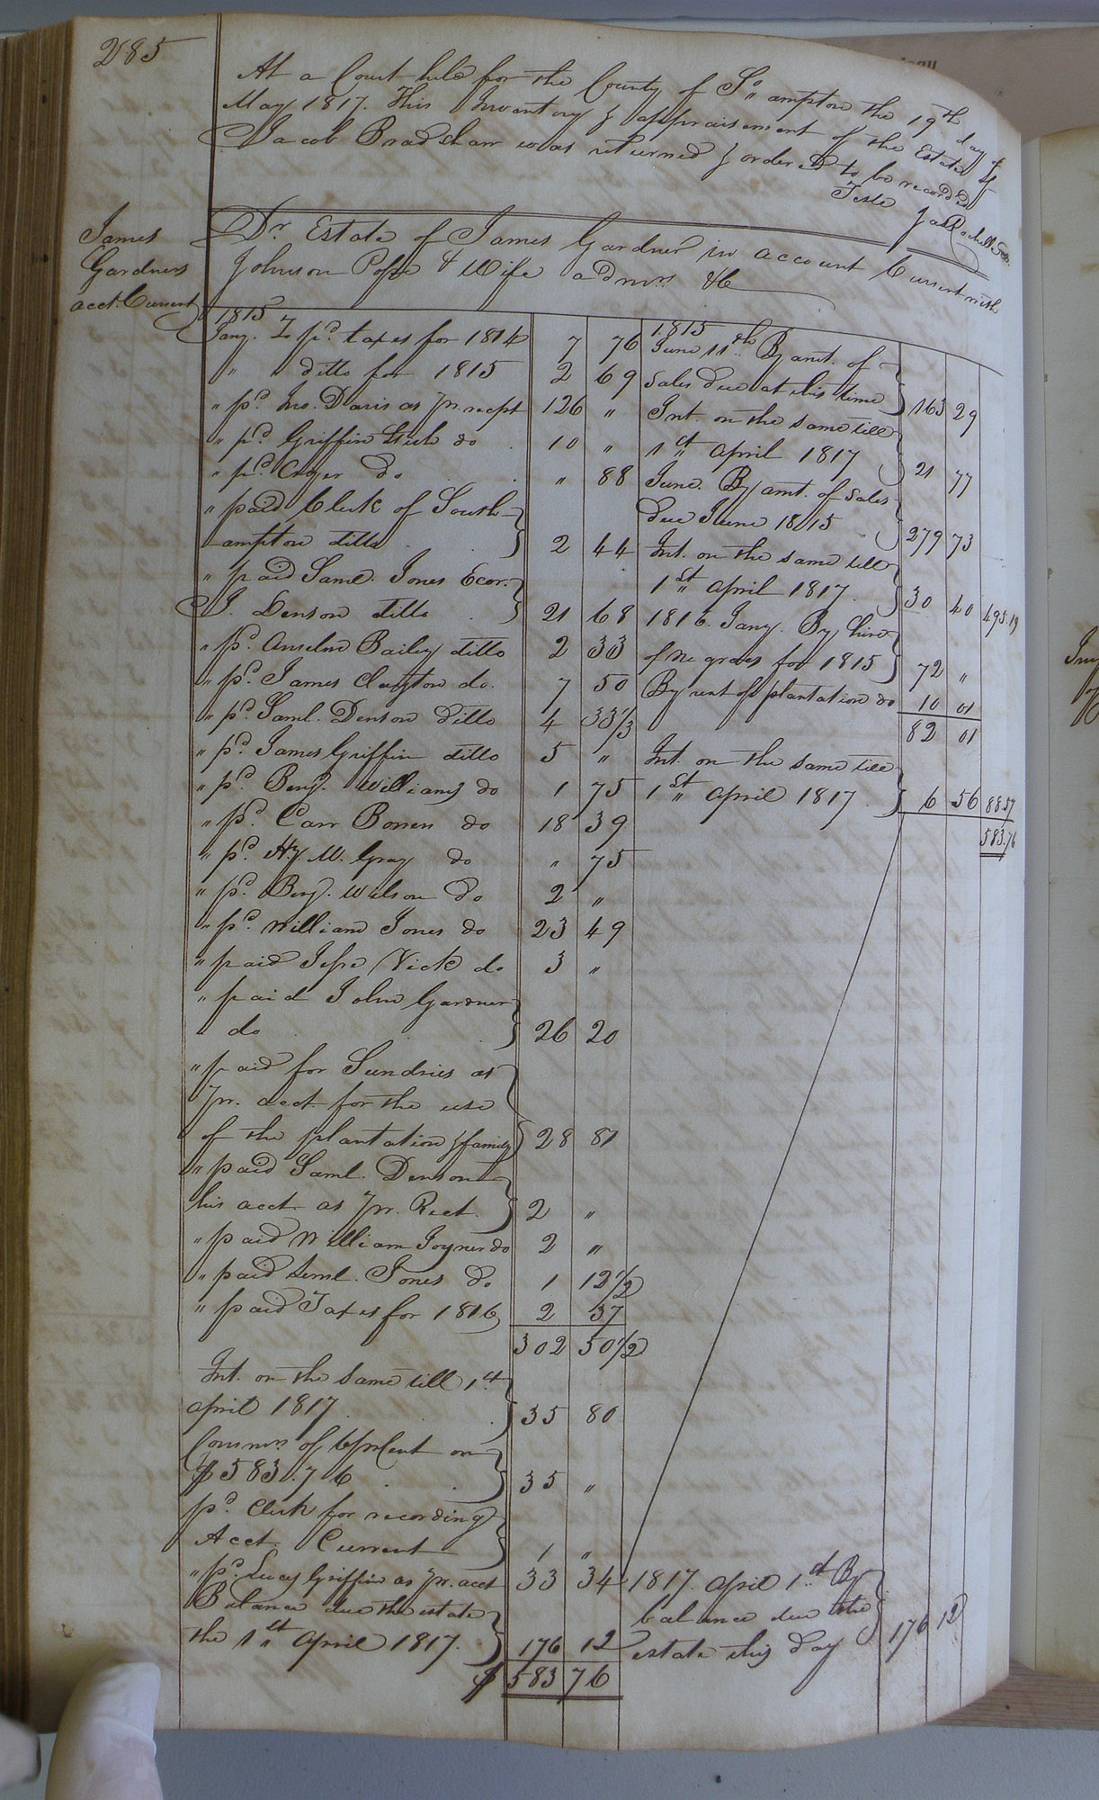 285
At a Court held for the County of So. ampton the 19th day of
May 1817. This Inventory & appraisement of the Estate of
Jacob Bradshaw was returned & ordered to be recorded
Teste Jas Rochelle
James
Gardners
acct. Current
Dr. Estate of James Gardner in account Current with
Johnson Pope & Wife admrs. &c
1815
Jany. To pd. taxes for 1814 7 76
" " ditto for 1815 2 69
" pd. Jno. Davis as pr. recpt 126 "
" pd. Griffin Stith do 10 "
" pd. do " 88
" paid Clerk of South-
ampton ditto 2 44
" paid Saml. Jones Exor.
J. Denson ditto 21 68
" pd. Anselm Bailey ditto 2 33
" pd. James Clayton do. 7 50
" pd. Saml. Denson ditto 4 33 1/3
" pd. James Griffin ditto 5 "
" pd. Benj. Williams do 1 75
" pd. Carr Bowers do 18 39
" pd. Hy. W. Gray do " 75
" pd. Benj. Wilson do 2 "
" pd. William Jones do 23 49
" paid Jesse Vick do 3 "
" paid John Gardner
" do 26 20
" paid for Sundries as
pr. acct. for the use
of the plantation & family 28 81
" paid Saml. Denson
his acct. as pr. Rect. 2 "
" paid William Joyner do 2 "
" paid Saml. Jones do 1 12 1/2
" paid Taxes for 1816 2 37
302 50 1/2
Int. on the same till 1st
april 1817 35 80
Commrs. of 6 pr Cent on
$583.76 35 "
pd. Clerk for recording
Acct. Current 1 "
" pd. Lucy Griffin as pr. acct 33 34
Balance due the estate
the 1st April 1817. 176 12
$ 583 76
1815
June 11th By amt. of
Sales due at this time 163 29
Int. on the same till
1st april 1817 21 77
June. By amt. of Sales
due June 1815 279 73
Int. on the same till
1st april 1817. 30 40 495.19
1816. Jany. By hire
of negroes for 1815 72 "
By rent of plantation do 10 01
82 01
Int. on the same till
1st april 1817 6 56 88.57
583.76
1817. april 1st By
balance due the
estate this day 176 12